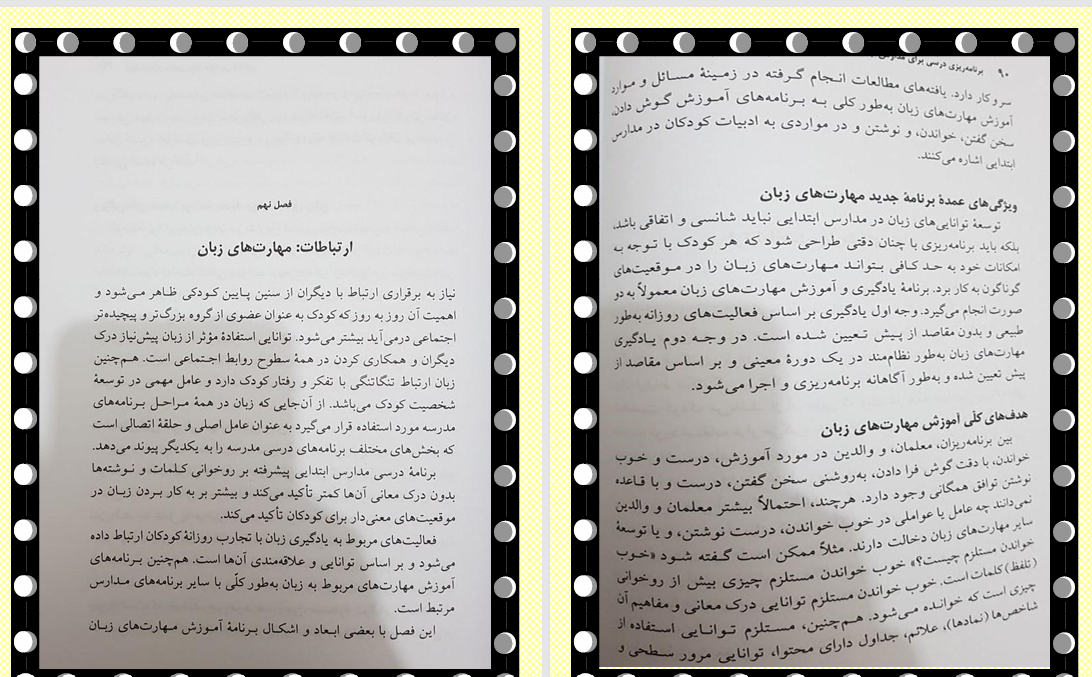 فصل نهم
ارتباطات: مهارت‌های زبان
نیاز به برقراری ارتباط با دیگران از سنین پایین کودکی ظاهر می‌شود و
اهمیت آن روز به روز که کودک به عنوان عضوی از گروه بزرگ‌تر و پیچیده‌تر
اجتماعی درمی‌آید بیشتر می‌شود. توانایی استفادهٔ مؤثر از زبان پیش‌نیاز درک
دیگران و همکاری کردن در همهٔ سطوح روابط اجتماعی است. هم‌چنین
زبان ارتباط تنگاتنگی با تفکر و رفتار کودک دارد و عامل مهمی در توسعهٔ
شخصیت کودک می‌باشد. از آن‌جایی که زبان در همهٔ مراحل برنامه‌های
مدرسه مورد استفاده قرار می‌گیرد به عنوان عامل اصلی و حلقهٔ اتصالی است
که بخش‌های مختلف برنامه‌های درسی مدرسه را به یکدیگر پیوند می‌دهد.
برنامهٔ درسی مدارس ابتدایی پیشرفته بر روخوانی کلمات و نوشته‌ها
بدون درک معانی آن‌ها کمتر تأکید می‌کند و بیشتر بر به کار بردن زبان در
موقعیت‌های معنی‌دار برای کودکان تأکید می‌کند.
فعالیت‌های مربوط به یادگیری زبان با تجارب روزانهٔ کودکان ارتباط داده
می‌شود و بر اساس توانایی و علاقه‌مندی آن‌ها است. هم‌چنین برنامه‌های
آموزش مهارت‌های مربوط به زبان به‌طور کلّی با سایر برنامه‌های مدارس
مرتبط است.
این فصل با بعضی ابعاد و اشکال برنامهٔ آموزش مهارت‌های زبان
۹۰ برنامه‌ریزی درسی برای
سروکار دارد. یافته‌های مطالعات انجام گرفته در زمینهٔ مسائل و موارد
آموزش مهارت‌های زبان به‌طور کلی به برنامه‌های آموزش گوش دادن،
سخن گفتن، خواندن، و نوشتن و در مواردی به ادبیات کودکان در مدارس
ابتدایی اشاره می‌کنند.
ویژگی‌های عمدهٔ برنامهٔ جدید مهارت‌های زبان
توسعهٔ توانایی‌های زبان در مدارس ابتدایی نباید شانسی و اتفاقی باشد،
بلکه باید برنامه‌ریزی با چنان دقتی طراحی شود که هر کودک با توجه به
امکانات خود به حد کافی بتواند مهارت‌های زبان را در موقعیت‌های
گوناگون به کار برد. برنامهٔ یادگیری و آموزش مهارت‌های زبان معمولاً به دو
صورت انجام می‌گیرد. وجه اول یادگیری بر اساس فعالیت‌های روزانه به‌طور
طبیعی و بدون مقاصد از پیش تعیین شده است. در وجه دوم یادگیری
مهارت‌های زبان به‌طور نظام‌مند در یک دورهٔ معینی و بر اساس مقاصد از
پیش تعیین شده و به‌طور آگاهانه برنامه‌ریزی و اجرا می‌شود.
هدف‌های کلّی آموزش مهارت‌های زبان
بین برنامه‌ریزان، معلمان، و والدین در مورد آموزش، درست و خوب
خواندن، با دقت گوش فرا دادن، به‌روشنی سخن گفتن، درست و با قاعده
نوشتن توافق همگانی وجود دارد. هرچند، احتمالاً بیشتر معلمان و والدین
نمی‌دانند چه عامل یا عواملی در خوب خواندن، درست نوشتن، و یا توسعهٔ
سایر مهارت‌های زبان دخالت دارند. مثلاً ممکن است گفته شود «خوب
خواندن مستلزم چیست؟» خوب خواندن مستلزم چیزی بیش از روخوانی
(تلفظ) کلمات است. خوب خواندن مستلزم توانایی درک معانی و مفاهیم آن
چیزی است که خوانده می‌شود. هم‌چنین، مستلزم توانایی استفاده از
شاخص‌ها (نمادها)، علائم، جداول دارای محتوا، توانایی مرور سطحی و